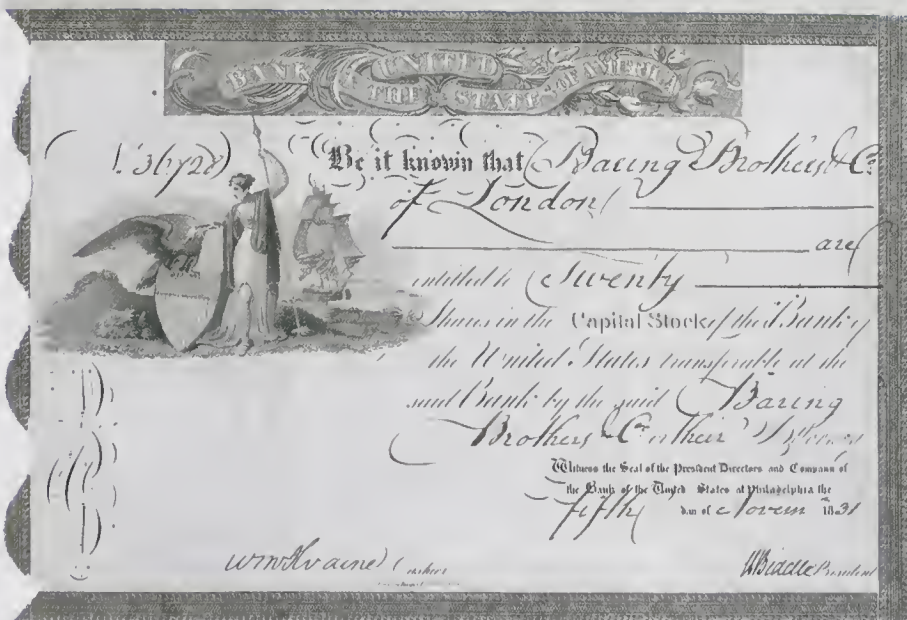 BANK UNITED
THE STATES OF AMERICA
Be it known that Baring Brothers & Co
of London
are
entitled to Twenty
Shares in the Capital Stock of the Bank of
the United States transferable at the
said Bank by the said Baring
Brothers & Co their
Witness the Seal of the President Directors and Company of
the Bank of the United States at Philadelphia the
fifth day of Novem 1831
Cashier
N Biddle President